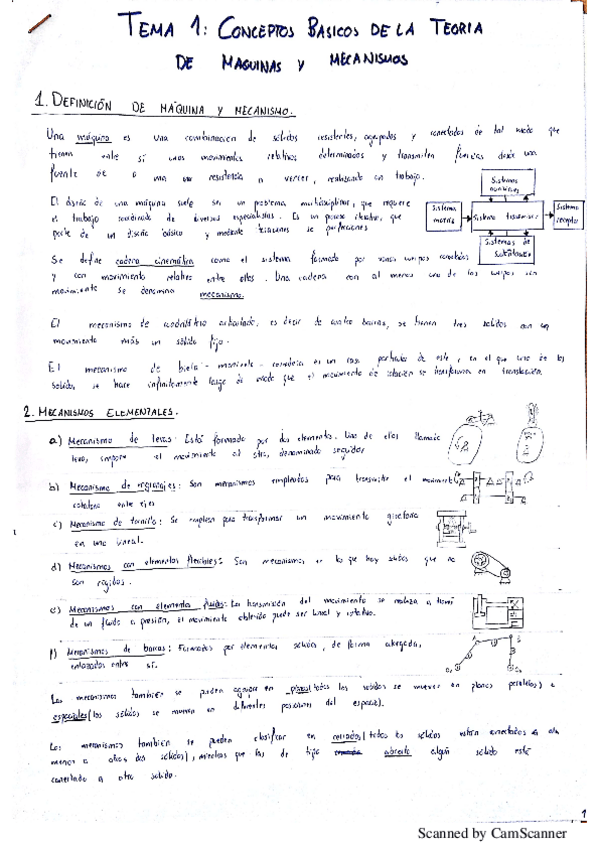 TEMA 1: CONCEPTOS BASICOS DE LA TEORIA
DE MAQUINAS Y MECANISMOS
1. DEFINICIÓN DE MÁQUINA Y MECANISMO.
Una máquina es una combinación de sólidos resistentes, agrupados y conectados de tal modo que
tienen entre sí unos movimientos relativos determinados y transmiten fuerzas desde una
fuente de a una resistencia a vencer, realizando un trabajo.
Sistemas
auxiliares
El diseño de una máquina suele ser un problema multidisciplinar, que requiere
el trabajo coordinado de diversos especialistas. Es un proceso iterativo, que
parte de un diseño básico y mediante iteraciones se perfecciona
Sistema
motriz
Sistema transmisor
Sistema
receptor
Sistemas de
Se define cadena cinemática como el sistema formado por varios cuerpos conectados
y con movimiento relativo entre ellos. Una cadena con al menos uno de los cuerpos sin
movimiento se denomina mecanismo.
El mecanismo de cuadrilátero articulado, es decir de cuatro barras, se tienen tres sólidos con un
movimiento más un sólido fijo.
El mecanismo de biela - manivela - corredera es un caso particular de este, en el que uno de los
sólidos se hace infinitamente largo de modo que el movimiento de rotación se transforma en translación.
2. MECANISMOS ELEMENTALES.
a) Mecanismo de levas: Está formado por dos elementos. Uno de ellos llamado
leva, impone el movimiento al otro, denominado seguidor
b) Mecanismo de engranajes: Son mecanismos empleados para transmitir el movimiento
rotatorio entre ejes
c) Mecanismo de tornillo: Se emplea para transformar un movimiento giratorio
en uno lineal.
d) Mecanismos con elementos flexibles: Son mecanismos en lo que hay sólidos que no
son rígidos.
e) Mecanismos con elementos fluidos: La transmisión del movimiento se realiza a través
de un fluido a presión, el movimiento obtenido puede ser lineal y rotativo.
f) Mecanismos de barras: Formados por elementos sólidos, de forma alargada,
enlazados entre sí.
Los mecanismos también se pueden agrupar en planos (todos los sólidos se mueven en planos paralelos) o
espaciales (los sólidos se mueven en diferentes posiciones del espacio).
Los mecanismos también se pueden clasificar en cerrados (todos los sólidos están conectados a al
menos a otros dos sólidos), mientras que los de tipo abierto algún sólido está
conectado a otro sólido.
1
Scanned by CamScanner